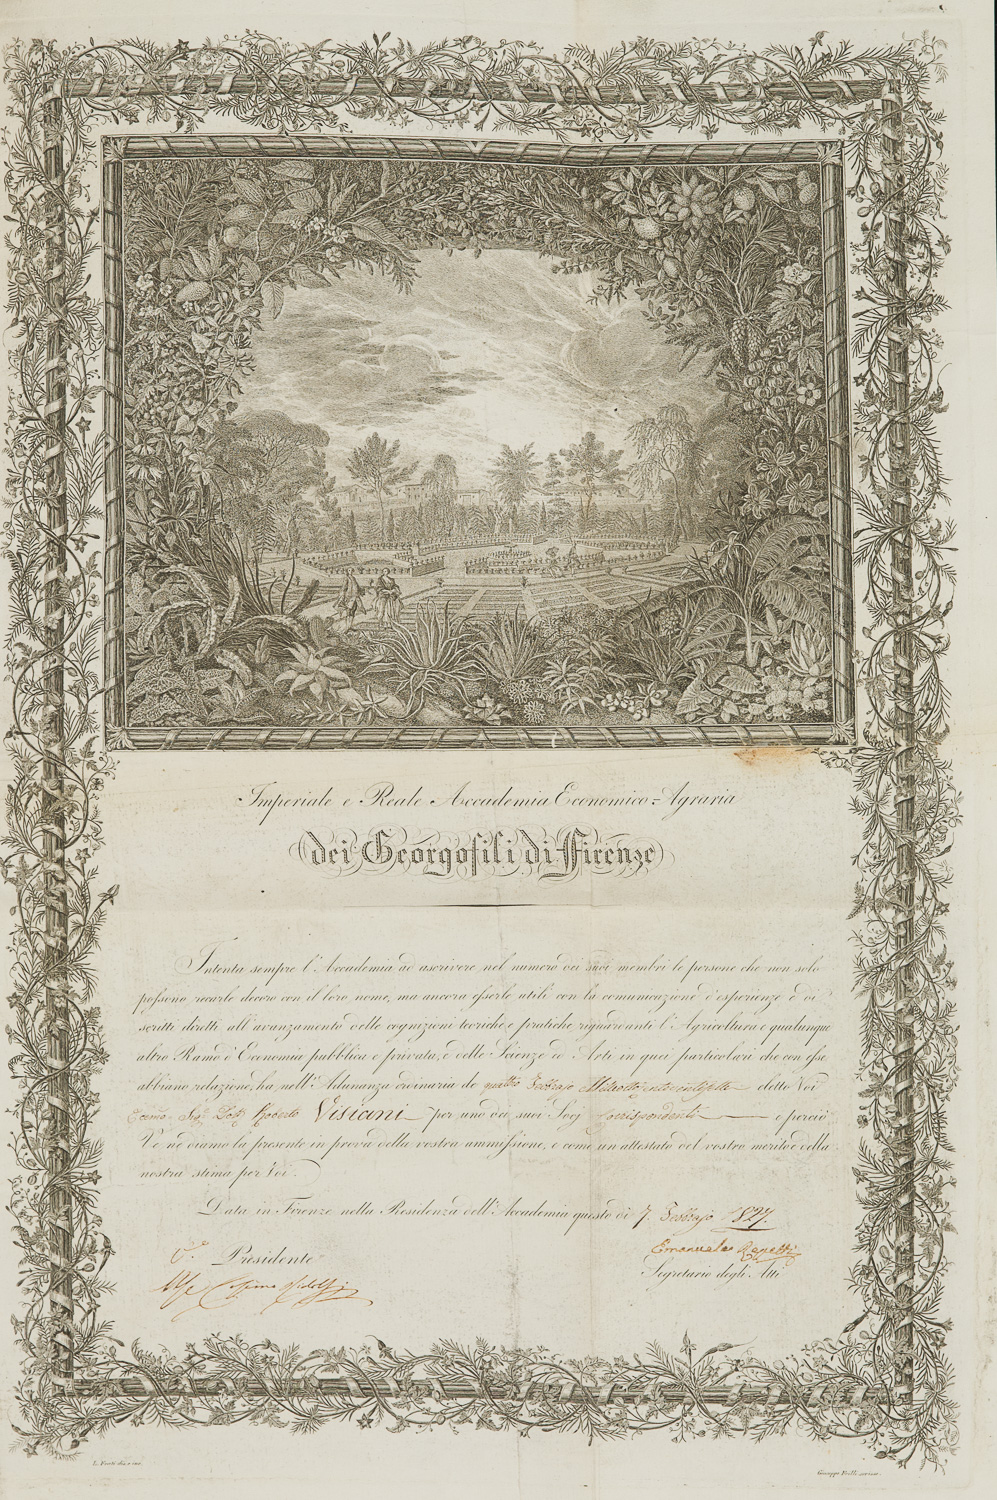 Imperiale e Reale Accademia Economico=Agraria
dei Georgofili di Firenze
Intenta sempre l'Accademia ad ascrivere nel numero dei suoi membri le persone che non solo
possono recarle decoro con il loro nome, ma ancora esserle utili con la comunicazione d'esperienze e di
scritti diretti all'avanzamento delle cognizioni teoriche e pratiche riguardanti l'Agricoltura e qualunque
altro Ramo d'Economia pubblica e privata, e delle Scienze ed Arti in quei particolari che con esse
abbiano relazione, ha nell'Adunanza ordinaria de quattro Febbrajo Milleottocentoventisette eletto Voi
Sig.r Dott. Roberto Visiani per uno dei suoi Socj Corrispondenti e perciò
Ve ne diamo la presente in prova della vostra ammissione, e come un attestato del vostro merito e della
nostra stima per Voi.
Data in Firenze nella Residenza dell'Accademia questo dì 7. Febbrajo 1827.
V.e Presidente
Emanuele Repetti
Segretario degli Atti
Ridolfi